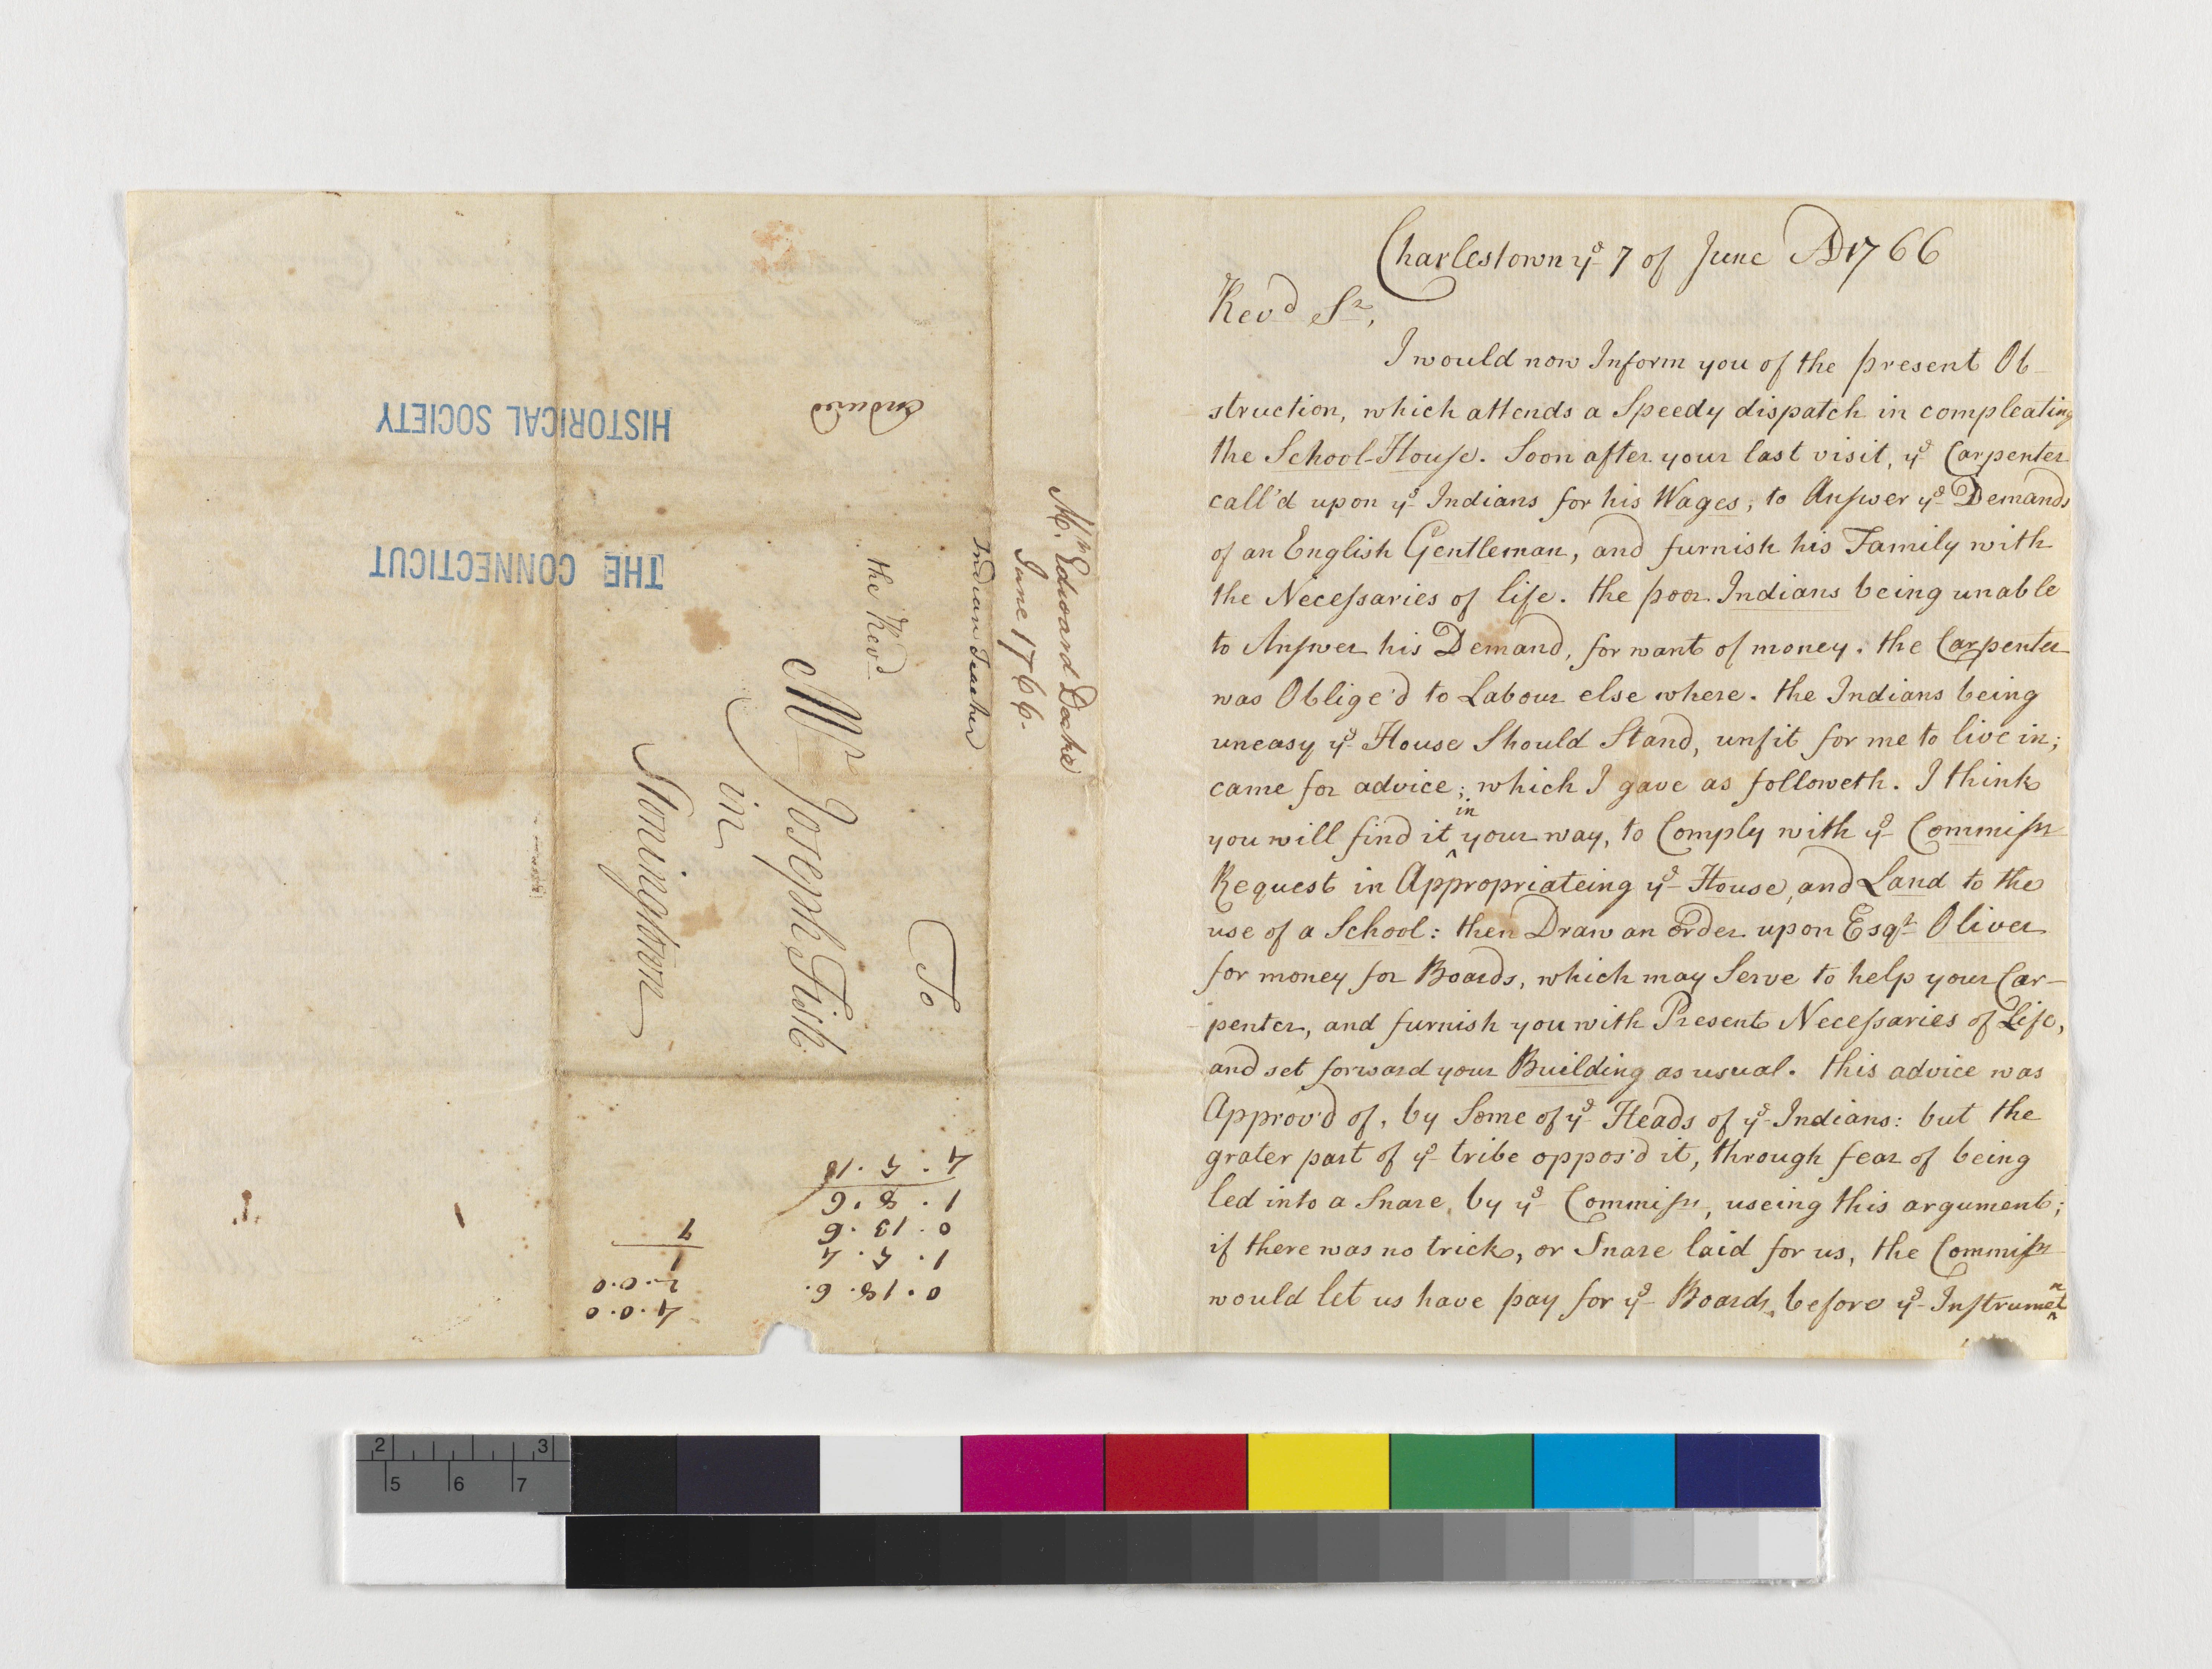 Charlestown ye 7 of June AD 1766
Revd Sr,
I would now Inform you of the present Ob-
struction, which attends a Speedy dispatch in compleating
the School-House. Soon after your last visit, ye Carpenter
call'd upon ye Indians for his Wages; to Answer ye Demands
of an English Gentleman, and furnish his Family with
the Necessaries of life. the poor Indians being unable
to Answer his Demand, for want of money. the Carpenter
was Oblige'd to Labour else where. the Indians being
uneasy ye House Should Stand, unfit for me to live in;
came for advice; which I gave as followeth. I think
you will find it in your way, to Comply with ye Commissr
Request in Appropriateing ye House, and Land to the
use of a School: then Draw an order upon Esqr Oliver
for money for Boards, which may Serve to help your Car-
penter, and furnish you with Present Necessaries of Life,
and set forward your Building as usual. this advice was
Approv'd of, by Some of ye Heads of ye Indians: but the
grater part of ye tribe oppos'd it, through fear of being
led into a Snare, by ye Commissr, useing this argument;
if there was no trick, or Snare laid for us, the Commissr
would let us have pay for ye Boards, before ye Instrument
Mr. Edward Deake
June 1766.
Indian Teacher
To
the Revd
Mr Joseph Fish
in
Stonington
THE CONNECTICUT
HISTORICAL SOCIETY
0.18.6.
1.5.4
0.13.6
1.8.6
4.5.10
4.0.0
2.0.0
1